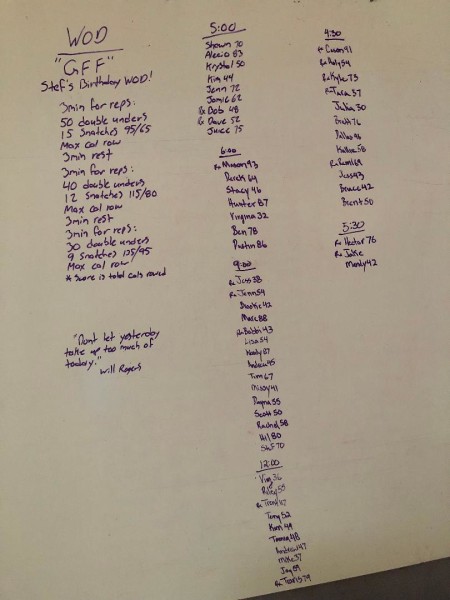 WOD
"GFF"
Stef's Birthday WOD!
3min for reps:
50 double unders
15 Snatches 95/65
Max cal row
3min rest
3min for reps:
40 double unders
12 Snatches 115/80
Max cal row
3min rest
3min for reps:
30 double unders
9 Snatches 135/95
Max cal row
* Score is total cals rowed
"Don't let yesterday
take up too much of
today."
Will Rogers
5:00
Shawn 70
Alexio 83
Krystal 50
Kim 44
Jenn 72
Jamie 62
Rx Bob 48
Rx Dave 52
Juice 75
6:00
Rx Mason 93
Derek 64
Stacy 46
Hunter 87
Virginia 32
Ben 78
Dustin 86
9:00
Rx Jess 38
Rx Jenn 54
Brookie 42
Marc 88
Rx Bobbi 43
Lisa 54
Andrea 45
Tim 67
Missy 41
Dayna 55
Scott 50
Rachel 58
Hil 80
Stef 70
12:00
Ving 36
Riley 55
Tony 52
Kim 49
Andrew 47
Mike 37
Jay 89
Rx Travis 79
4:30
Rx Kyle 73
Rx Tara 57
Julia 30
Brett 76
Dallas 96
Jess 43
Bruce 42
Brent 50
5:30
Rx Hector 76
Rx Jake
Mandy 42